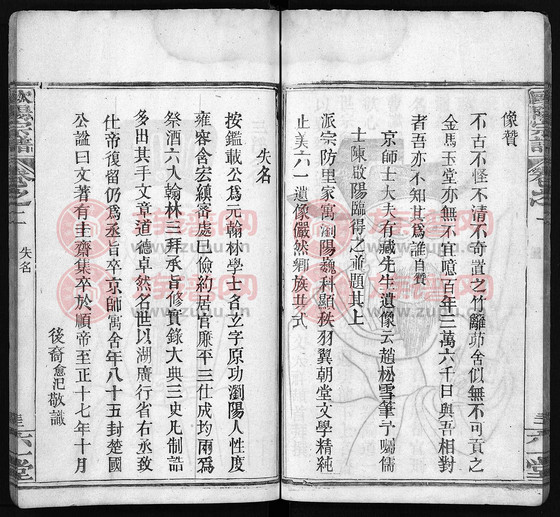 像贊
不古不怪不清不奇置之竹籬茆舍似無不可貢之
金馬玉堂亦無不宜噫百年三萬六千日與吾相對
者吾亦不知其為誰自贊
京師士大夫有藏先生遺像云趙松雪筆予囑儒
士陳啟陽臨得之並題其上
派宗防里家寓瀏陽巍科顯秩羽翼朝堂文學精純
止美六一遺像儼然鄉族共式
失名
按鑑載公為元翰林學士名玄字原功瀏陽人性度
雍容含宏縝密處已儉約居官廉平三仕成均兩為
祭酒六入翰林三拜承旨修實錄大典三史凡制誥
多出其手文章道德卓然名世以湖廣行省右丞致
仕帝復留仍為丞旨卒京師寓舍年八十五封楚國
公諡曰文著有圭齋集卒於順帝至正十七年十月
後裔愈汜敬識
失名
六一堂
族譜网
www.zupu.cn